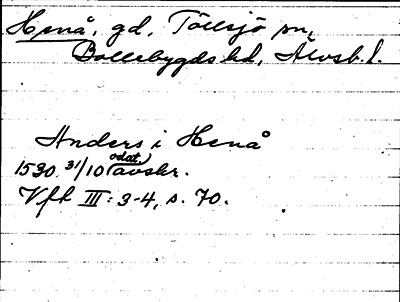 Henå, gd, Töllsjö sn,
Bollebygds hd, Älvsb. l.
Anders i Henå
1530. 31/10 (odat.) avskr.
Vfh III: 3-4, s. 70.